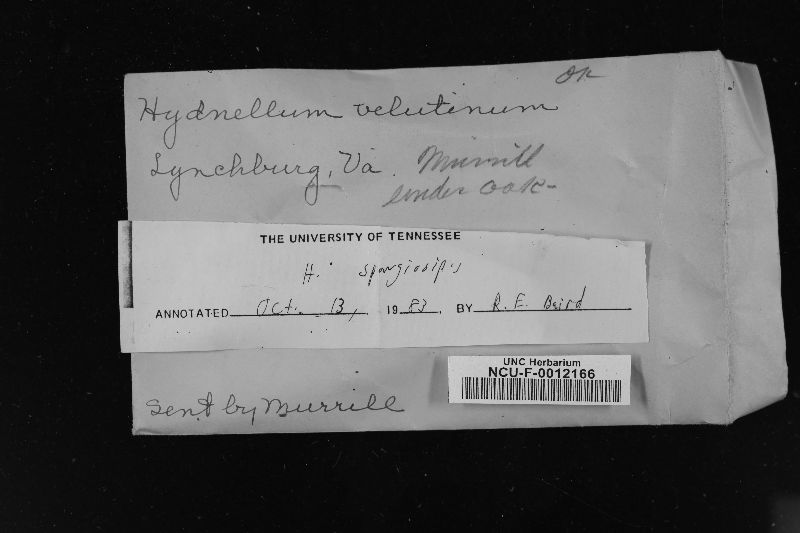 OK
Hydnellum velutinum
Lynchburg, Va. Murrill
under oak-
THE UNIVERSITY OF TENNESSEE
H. spongiosipes
ANNOTATED Oct. 13, 1983. BY R. E. Baird
UNC Herbarium
NCU-F-0012166
Sent by Murrill